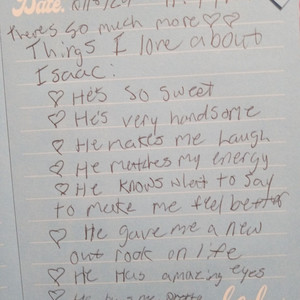 Date:
theres so much more♡♡
Things I love about
Isaac:
♡ He's so sweet
♡ He's very handsome
♡ He makes me laugh
♡ He matches my energy
♡ He knows what to say
to make me feel better
♡ He gave me a new
out rook on life
♡ He Has amazing eyes